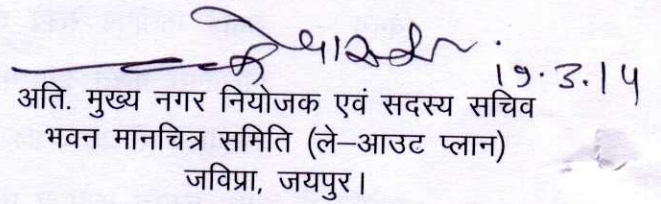 19.3.14
अति. मुख्य नगर नियोजक एवं सदस्य सचिव
भवन मानचित्र समिति (ले–आउट प्लान)
जविप्रा, जयपुर।